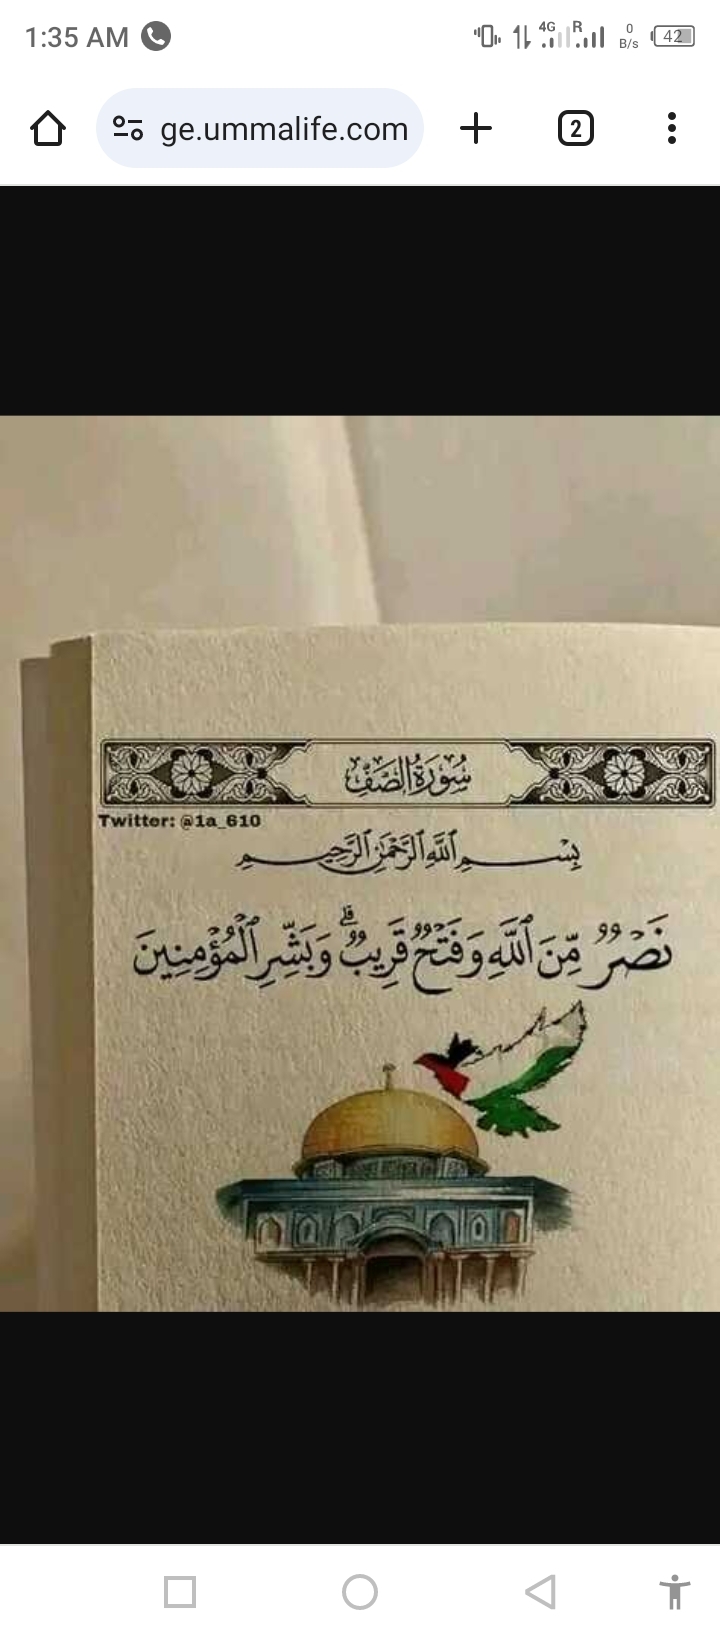 1:35 AM
4G R 0 B/s 42
ge.ummalife.com 2
سُورَةُ الصَّفِّ
Twitter: @1a_610
بِسْمِ ٱللَّهِ ٱلرَّحْمَٰنِ ٱلرَّحِيمِ
نَصْرٌ مِّنَ ٱللَّهِ وَفَتْحٌ قَرِيبٌ ۗ وَبَشِّرِ ٱلْمُؤْمِنِينَ